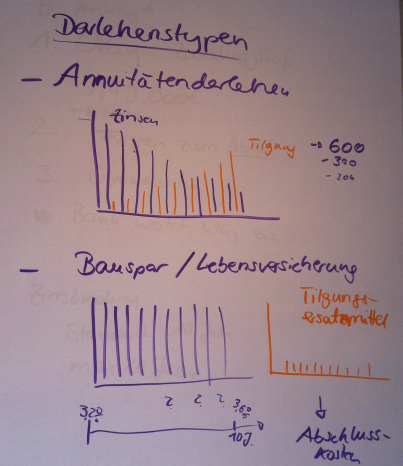 Darlehenstypen
– Annuitätendarlehen
Zinsen
Tilgung → 600
- 300
- 200
– Bauspar / Lebensversicherung
Tilgungs-
ersatzmittel
? ? ?
3,20
10J.
Abschluss-
kosten